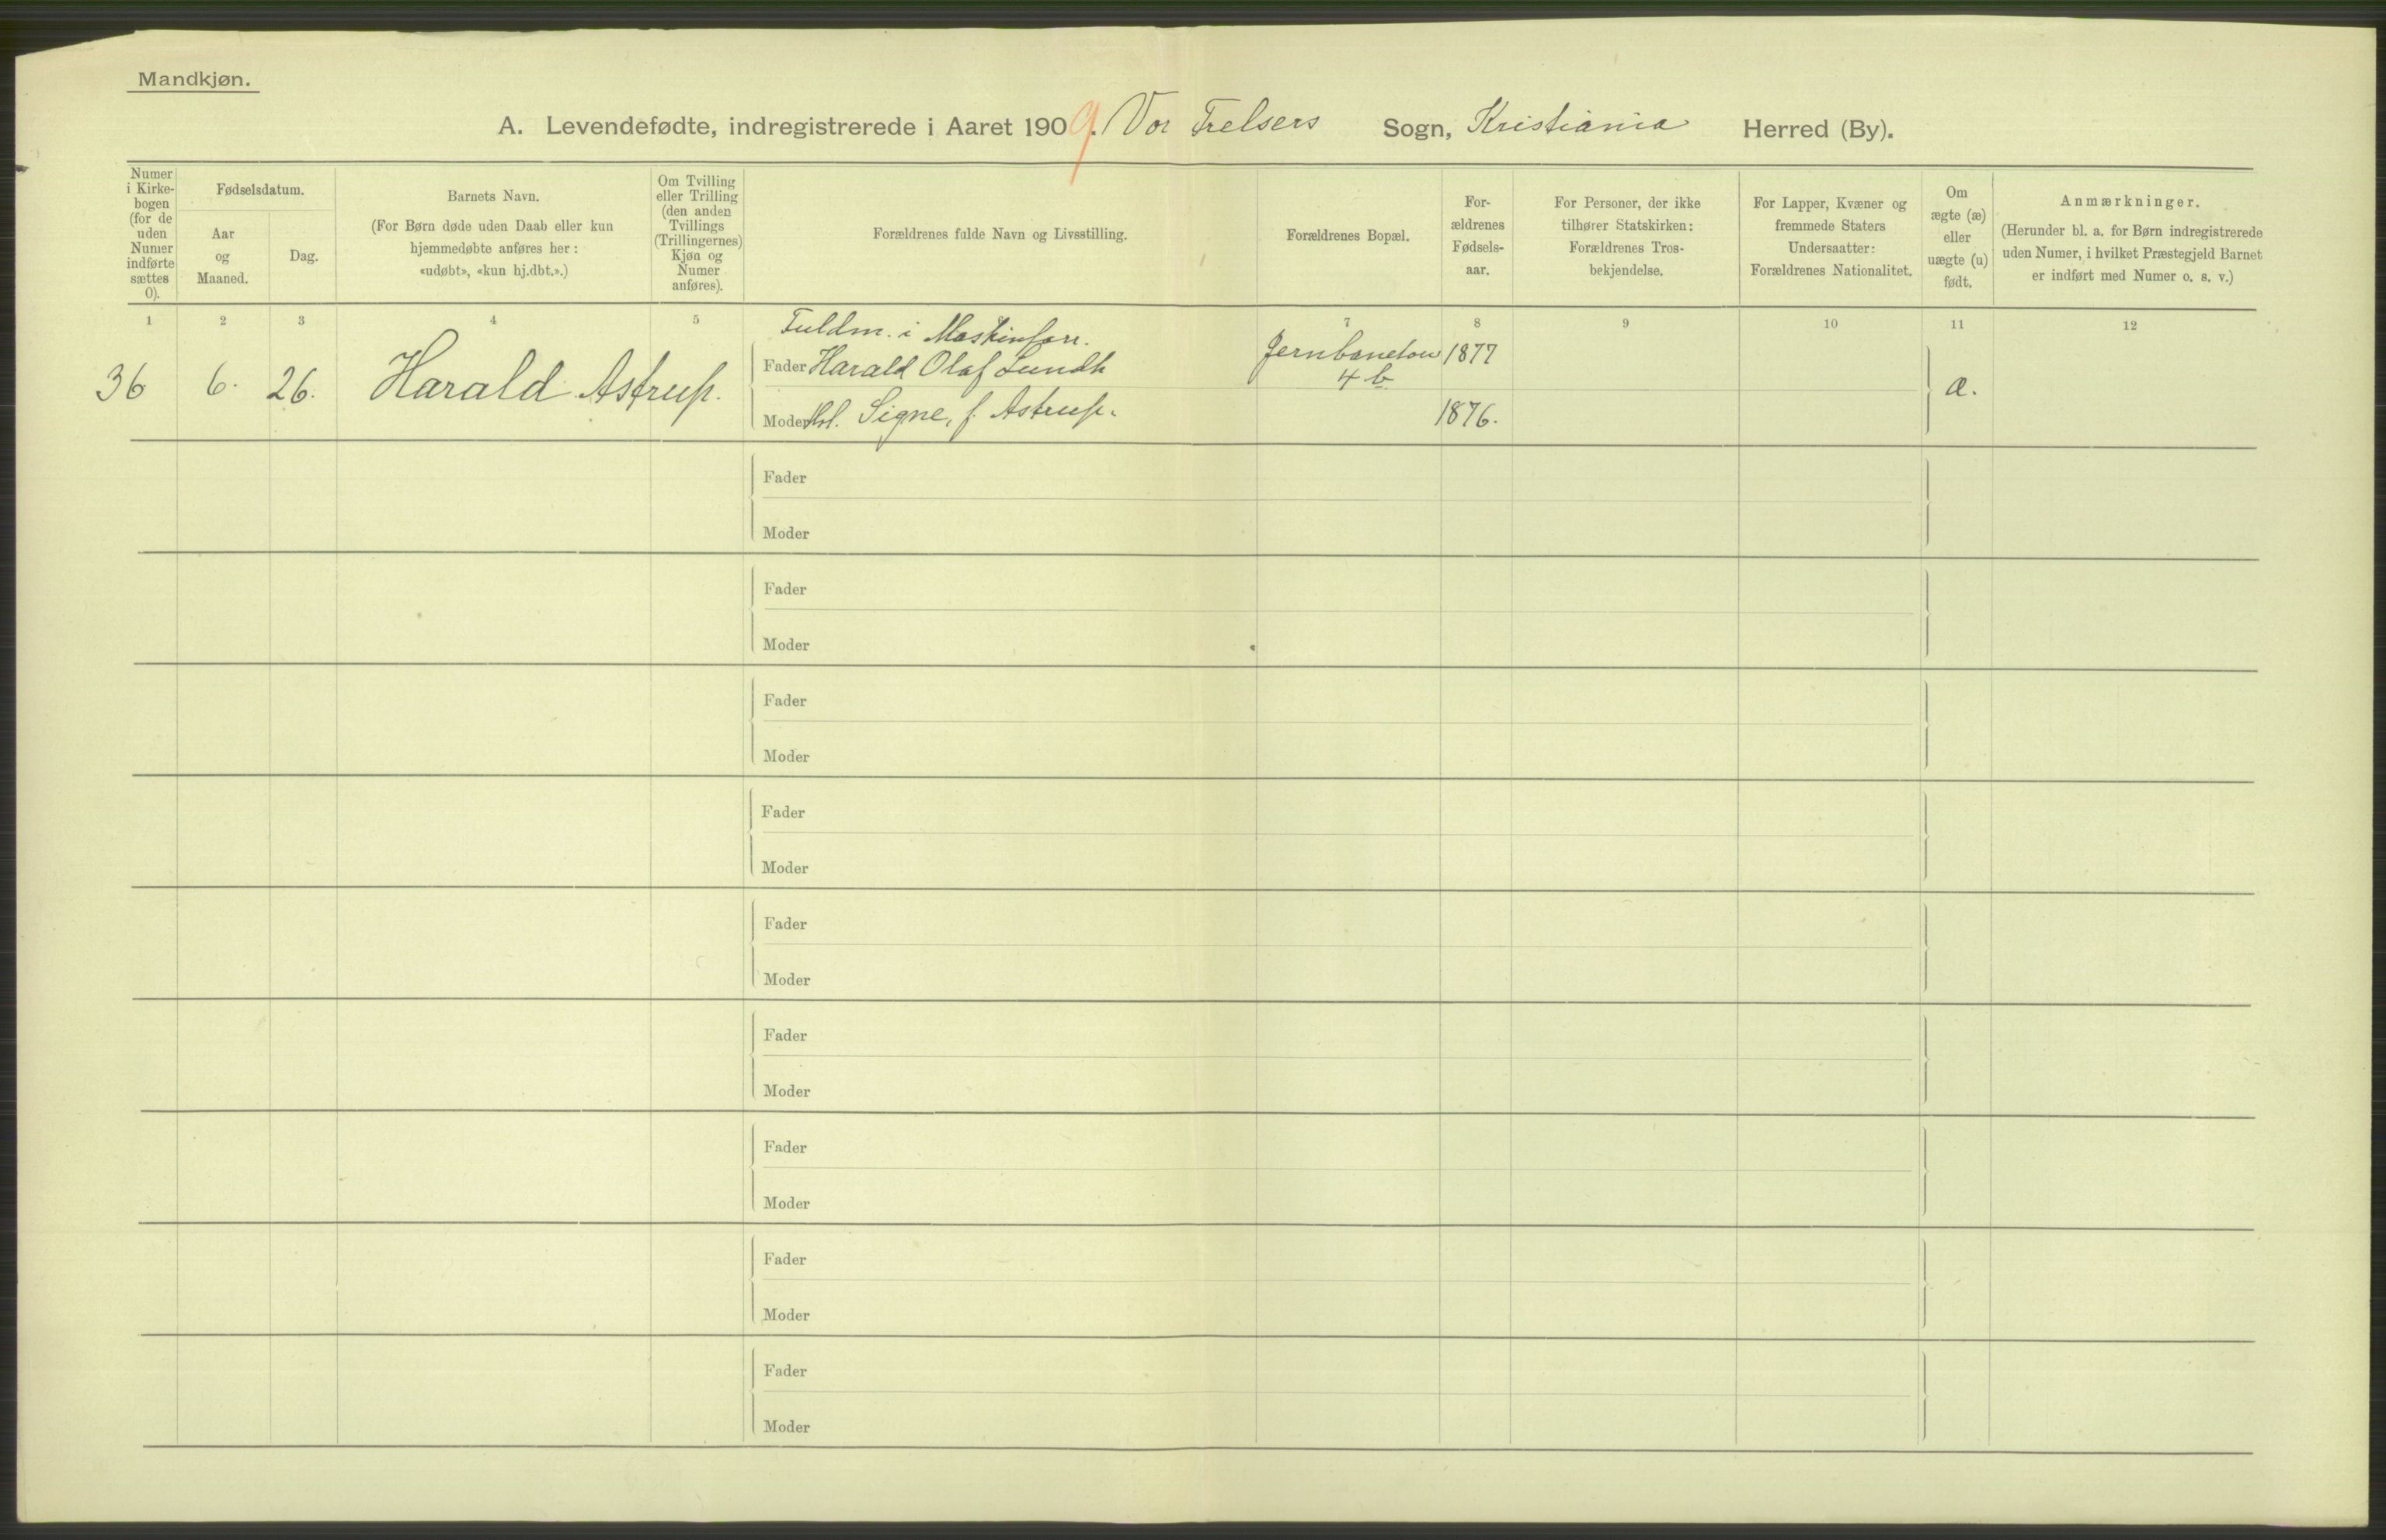 Mandkjøn.
A. Levendefødte, indregistrerede i Aaret 1909. Vor Frelsers Sogn, Kristiania Herred (By).
Numer
i Kirke-
bogen
(for de
uden
Numer
indførte
sættes
0).
Fødselsdatum.
Aar
og
Maaned.
Dag.
Barnets Navn.
(For Børn døde uden Daab eller kun
hjemmedøbte anføres her:
«udøbt», «kun hj.dbt.».)
Om Tvilling
eller Trilling
(den anden
Tvillings
(Trillingernes)
Kjøn og
Numer
anføres).
Forældrenes fulde Navn og Livsstilling.
Forældrenes Bopæl.
For-
ældrenes
Fødsels-
aar.
For Personer, der ikke
tilhører Statskirken:
Forældrenes Tros-
bekjendelse.
For Lapper, Kvæner og
fremmede Staters
Undersaatter:
Forældrenes Nationalitet.
Om
ægte (æ)
eller
uægte (u)
født.
Anmærkninger.
(Herunder bl. a. for Børn indregistrerede
uden Numer, i hvilket Præstegjeld Barnet
er indført med Numer o. s. v.)
1 2 3 4 5 7 8 9 10 11 12
Fuldm. i Maskinforr.
36 6. 26. Harald Astrup.
Fader Harald Olaf Lundh
Jernbanetow 1877
4 b
Moder Hst. Signe, f. Astrup.
1876.
æ.
Fader
Moder
Fader
Moder
Fader
Moder
Fader
Moder
Fader
Moder
Fader
Moder
Fader
Moder
Fader
Moder
Fader
Moder